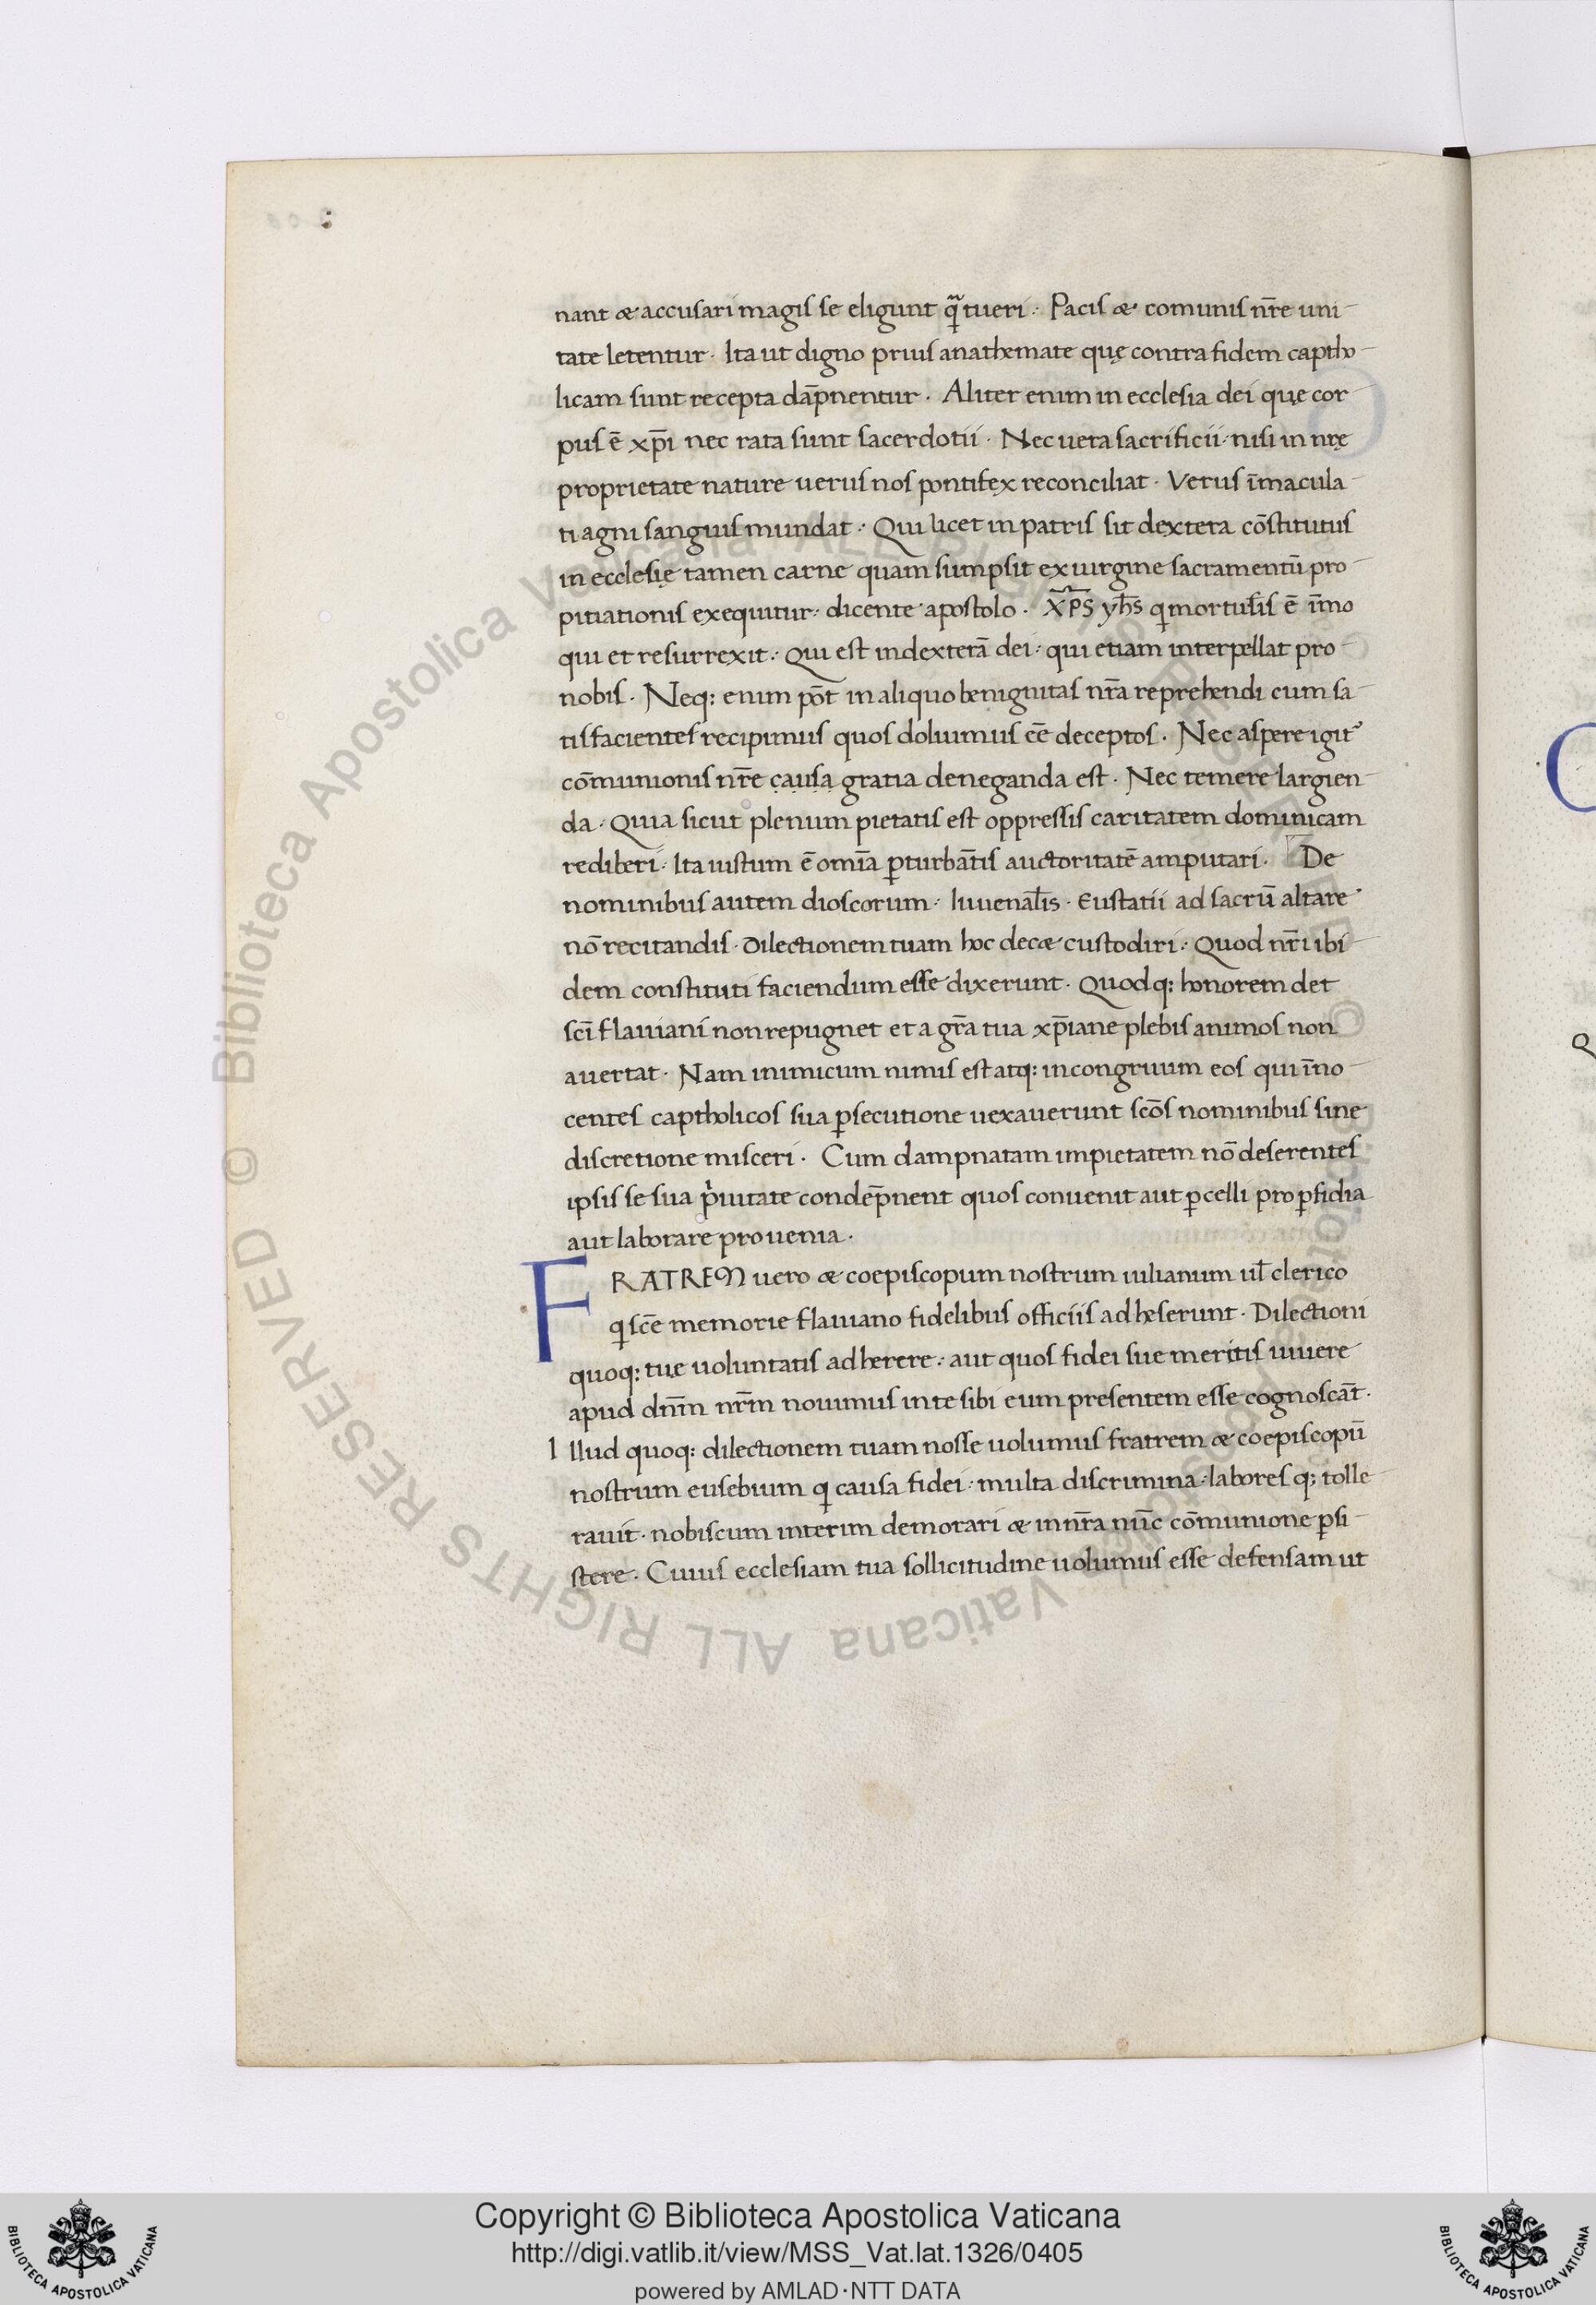 nant æ accusari magis se eligunt q̃ tueri. Pacis æ comunis nr̄e uni-
tate letentur. Ita ut digno prius anathemate quę contra fidem captho-
licam sunt recepta dāpnentur. Aliter enim in ecclesia dei quę cor
pus ē xp̄i nec rata sunt sacerdotii. Nec uera sacrificii. nisi in nrę
proprietate nature uerus nos pontifex reconciliat. Verus īmacula-
ti agni sanguis mundat. Qui licet in patris sit dextera cōstitutus
in ecclesię tamen carne quam sumpsit ex uirgine sacramentū pro-
pitiationis exequitur. dicente apostolo. XP̄S yh̄s q mortuus ē īmo
qui et resurrexit. Qui est in dexterā dei. qui etiam interpellat pro-
nobis. Neq: enim pōt in aliquo benignitas nr̄a reprehendi cum sa-
tisfacientes recipimus quos doluimus eē deceptos. Nec aspere igit᷑
cōmunionis nr̄e causa gratia deneganda est. Nec temere largien-
da. Quia sicut plenum pietatis est oppressis caritatem dominicam
rediberi. Ita iustum ē omīa ꝑturbātis auctoritatē amputari. De
nominibus autem dioscorum. Iuuenal̄is. Eustatii ad sacrū altare
nō recitandis. Dilectionem tuam hoc decæ custodiri. Quod nr̄i ibi-
dem constituti faciendum esse dixerunt. Quodq: honorem det
sc̄i flauiani non repugnet et a gr̄a tua xp̄iane plebis animos non
auertat. Nam inimicum nimis est atq: incongruum eos qui īno-
centes captholicos sua ꝑsecutione uexauerunt sc̄os nominibus sine
discretione misceri. Cum dampnatam impietatem nō deserentes
ipsis se sua p̓uitate condēpnent quos conuenit aut ꝑcelli pro ꝑfidia
aut laborare pro uenia.
FRATREM uero æ coepiscopum nostrum iulianum ul̄ clerico
q sc̄e memorie flauiano fidelibus officiis adheserunt. Dilectioni
quoq: tuę uoluntatis adherere. aut quos fidei sue meritis uiuere
apud dn̄m nr̄m nouimus in te sibi eum presentem esse cognoscāt.
Illud quoq: dilectionem tuam nosse uolumus fratrem æ coepiscopū
nostrum eusebium q causa fidei. multa discrimina. labores q; tolle-
rauit. nobiscum interim demorari æ in nr̄a nūc cōmunione ꝑsi-
stere. Cuius ecclesiam tua sollicitudine uolumus esse defensam ut
Copyright © Biblioteca Apostolica Vaticana
http://digi.vatlib.it/view/MSS_Vat.lat.1326/0405
powered by AMLAD·NTT DATA
© Biblioteca Apostolica Vaticana ALL RIGHTS RESERVED
BIBLIOTECA APOSTOLICA VATICANA
BIBLIOTECA APOSTOLICA VATICANA